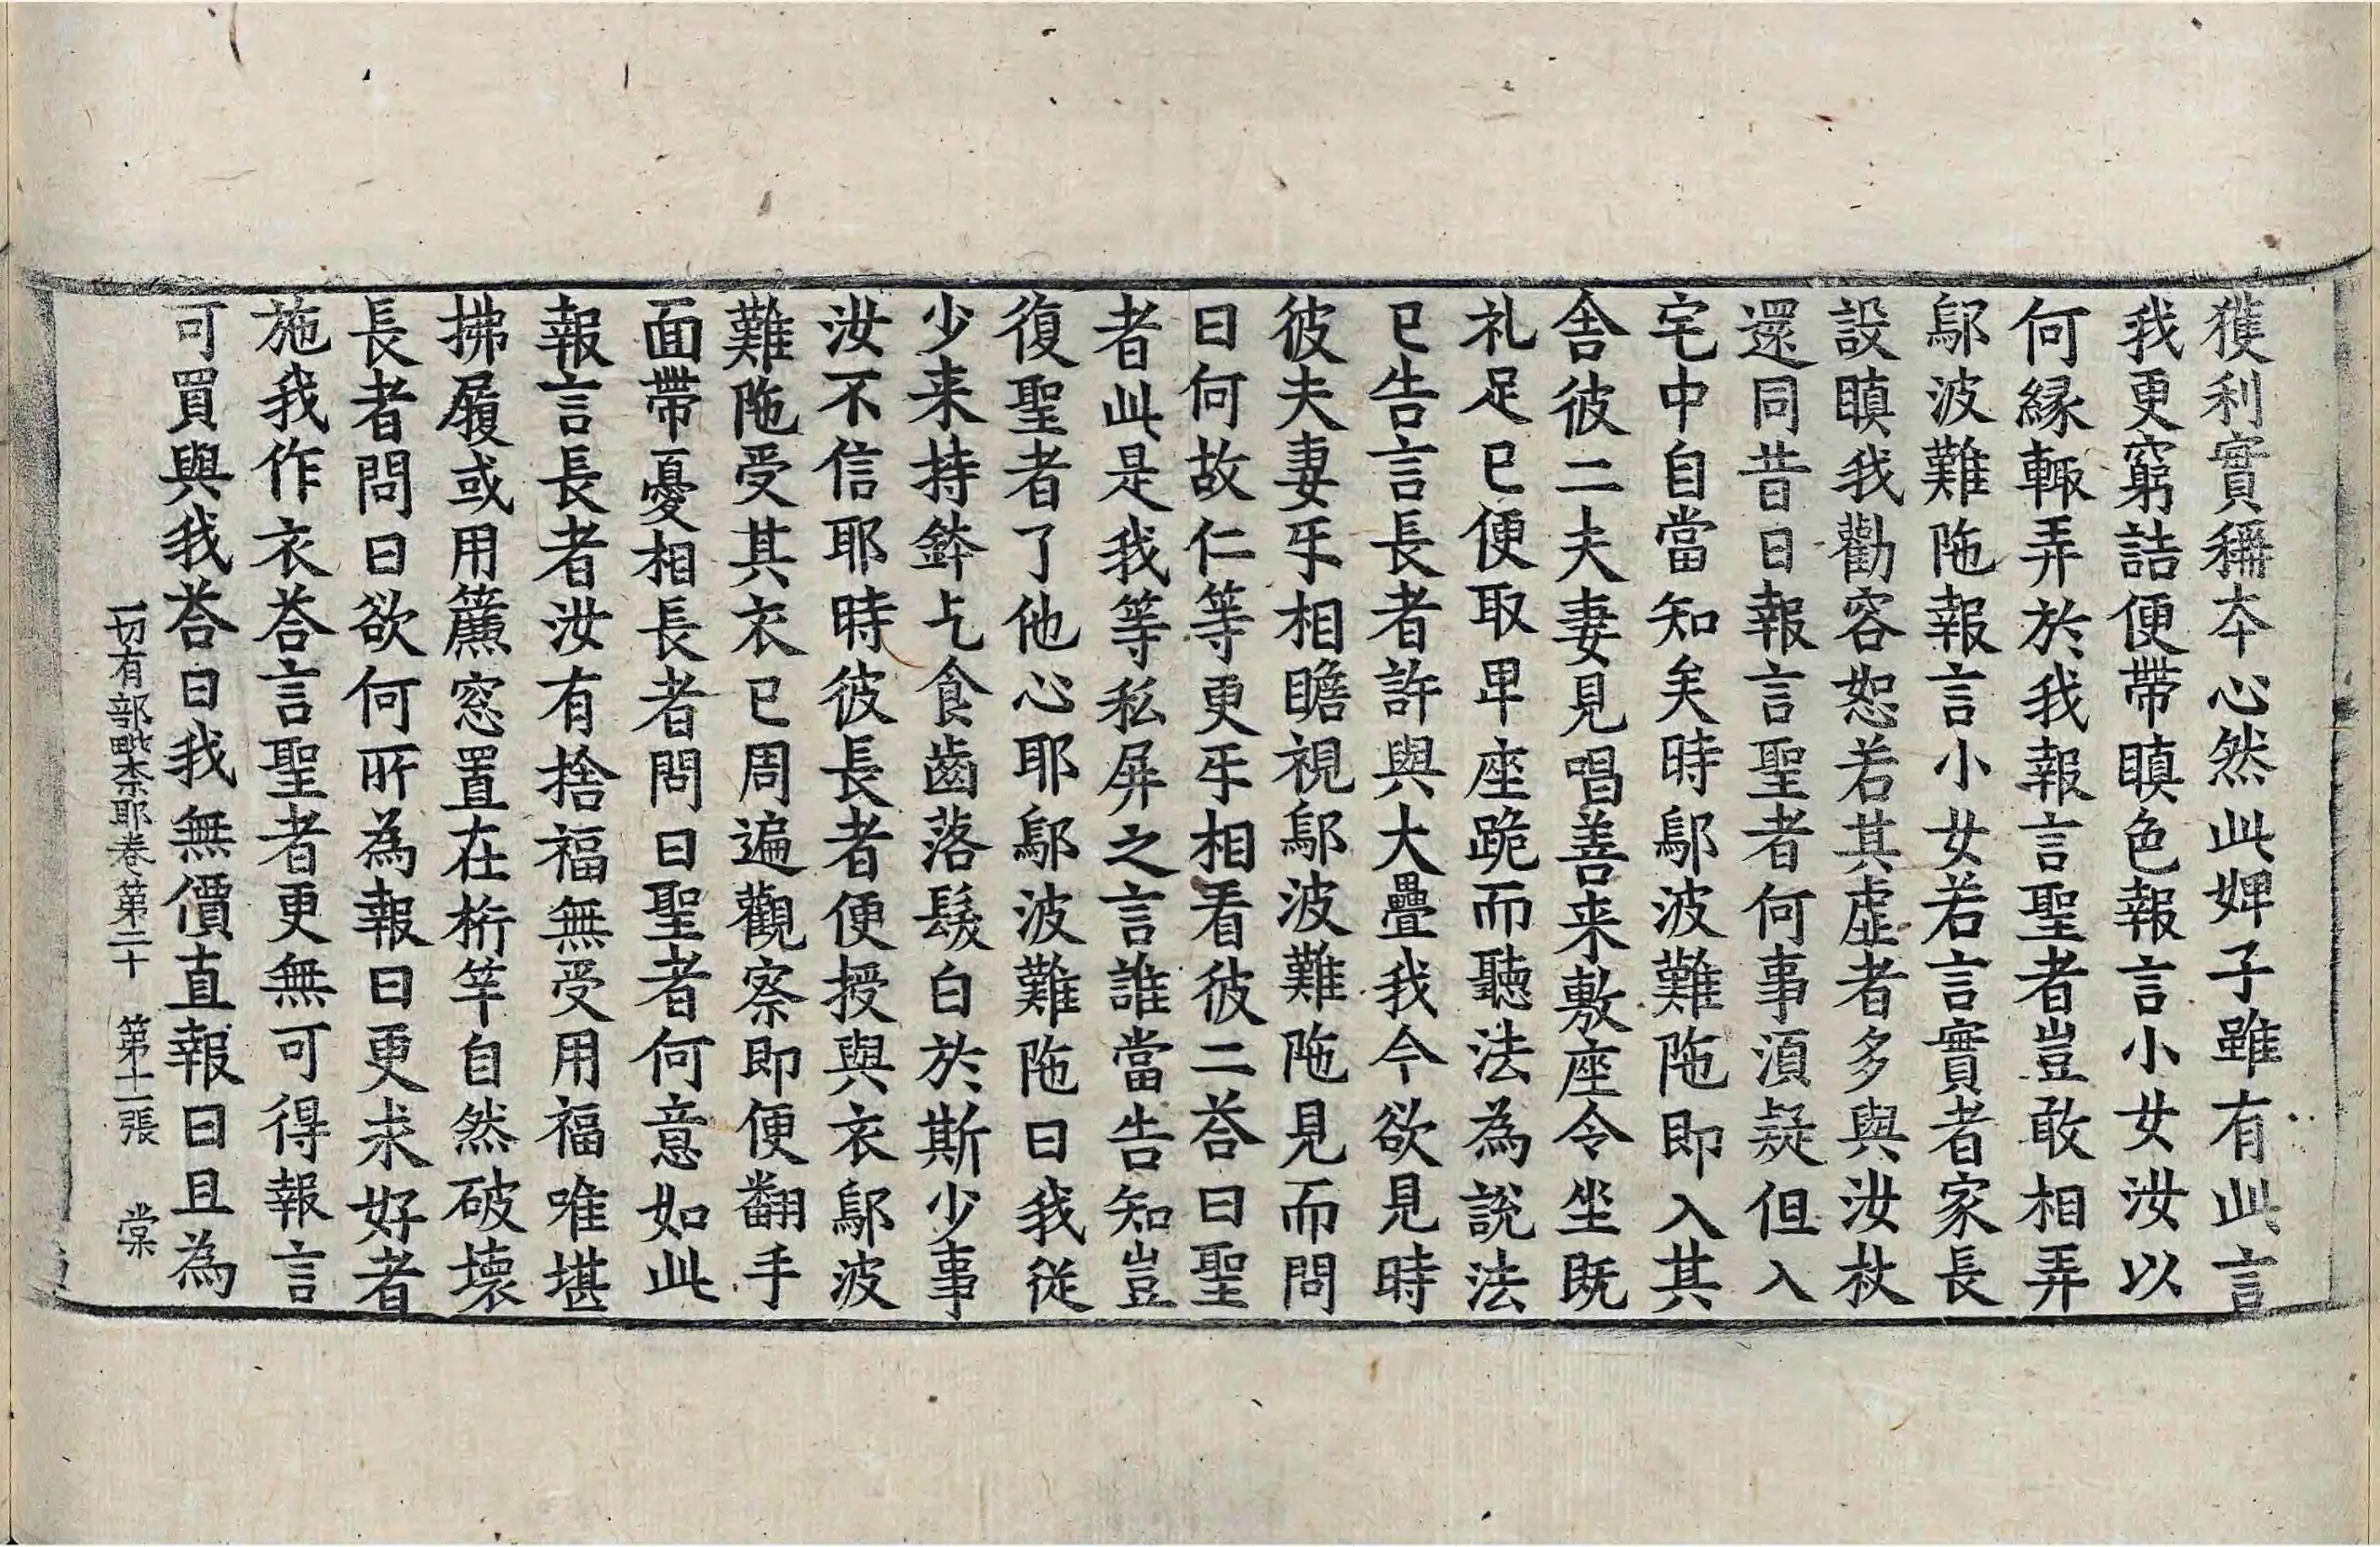 獲利實稱夲心然此婢子雖有此言
我更窮詰便帶瞋色報言小女汝以
何緣輙弄於我報言聖者豈敢相弄
鄔波難陁報言小女若言實者家長
設瞋我勸容恕若其虛者多與汝杖
還同昔日報言聖者何事湏疑但入
宅中自當知矣時鄔波難陁即入其
舎彼二夫妻見唱善来敷座令坐既
礼足已便取卑座跪而聽法為說法
已告言長者許與大疊我今欲見時
彼夫妻㸦相瞻視鄔波難陁見而問
曰何故仁等更㸦相看彼二荅曰聖
者此是我等私屏之言誰當告知豈
復聖者了他心耶鄔波難陁曰我從
少来持鉢乞食齒落髮白於斯少事
汝不信耶時彼長者便授與衣鄔波
難陁受其衣已周遍觀察即便翻手
面帶憂相長者問曰聖者何意如此
報言長者汝有捨福無受用福唯堪
拂履或用簾窓置在桁竿自然破壞
長者問曰欲何所為報曰更求好者
施我作衣荅言聖者更無可得報言
可買與我荅曰我無價直報曰且為
一切有部毗柰耶卷第二十 第十二張 棠